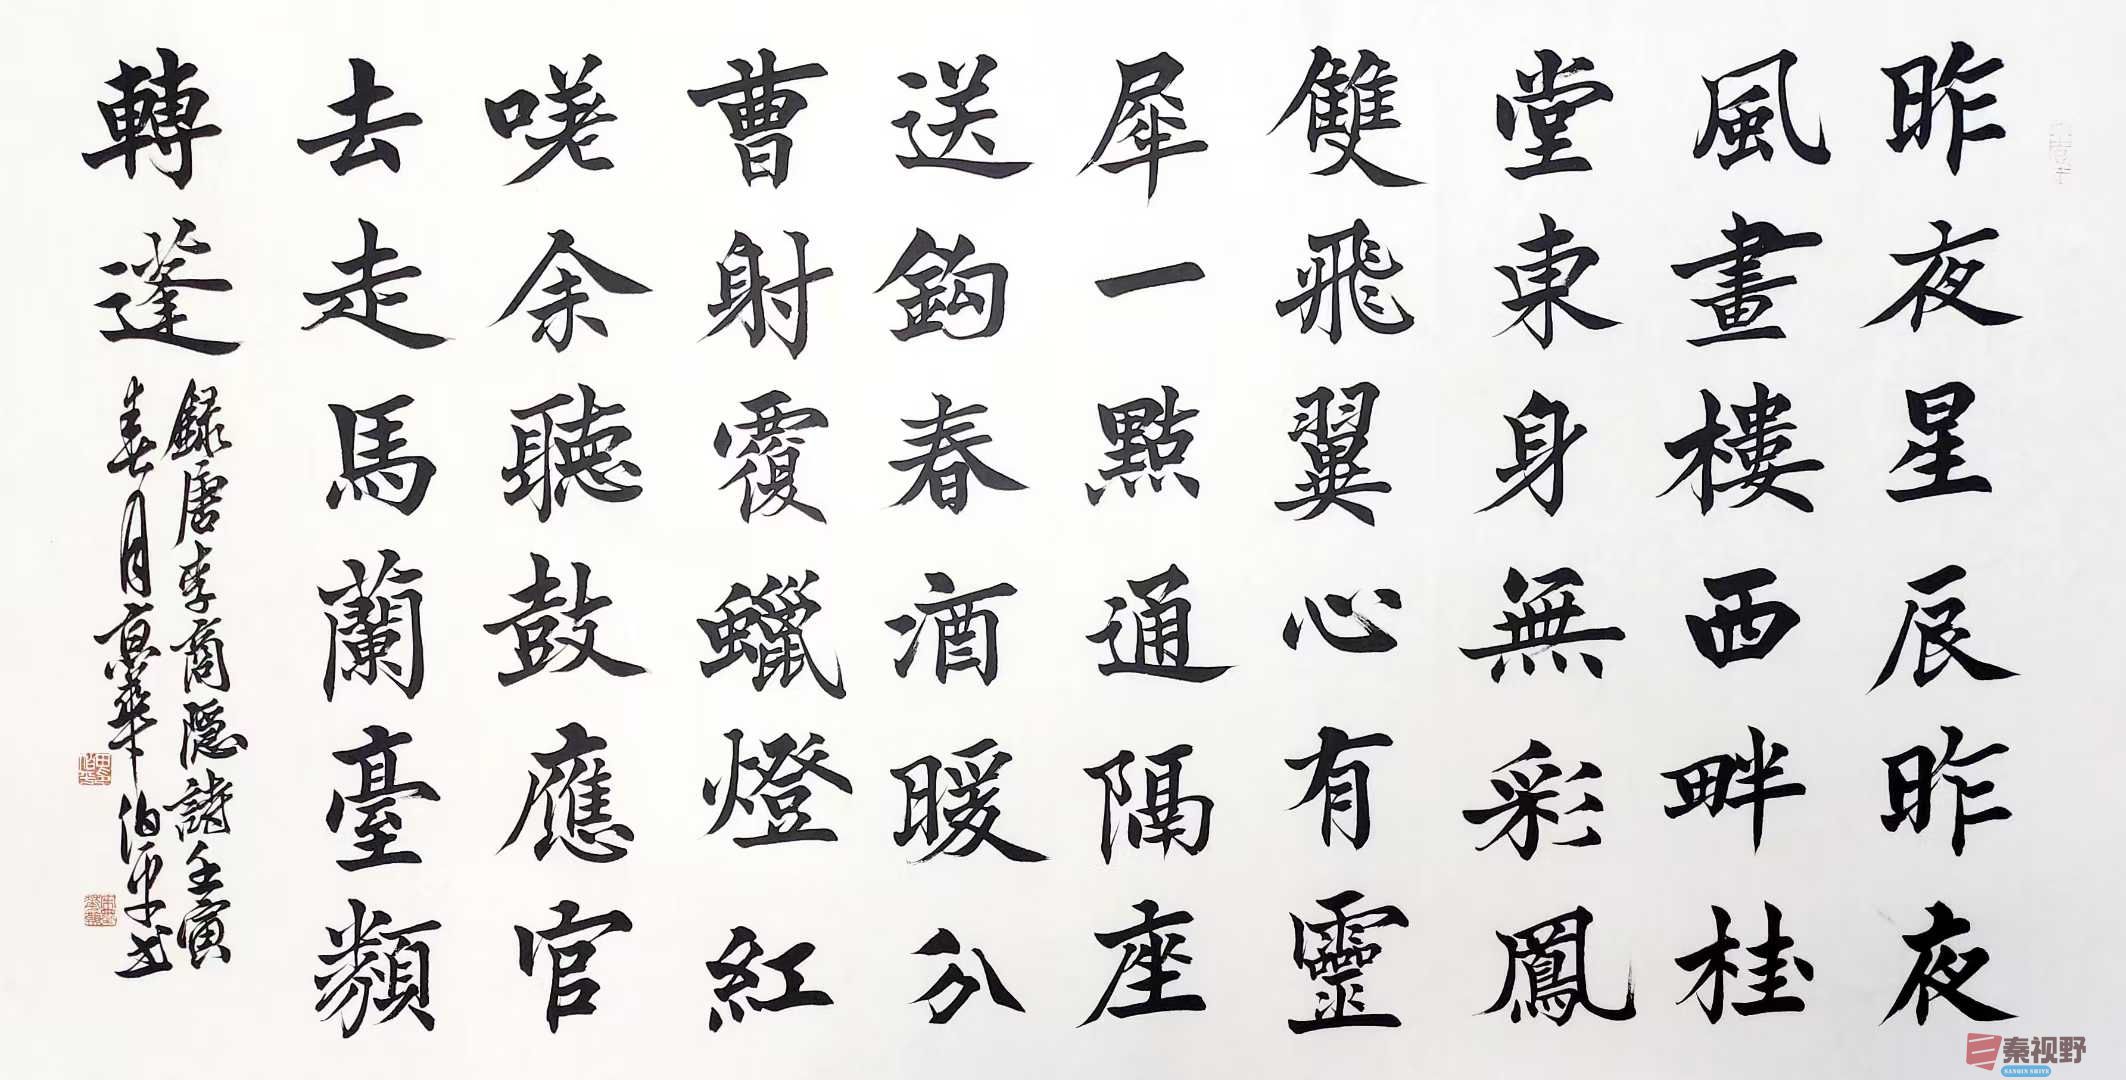 昨夜星辰昨夜
風畫樓西畔桂
堂東身無彩鳳
雙飛翼心有靈
犀一點通隔座
送鈎春酒暖分
曹射覆蠟燈紅
嗟余聽鼓應官
去走馬蘭臺類
轉蓬
録唐李商隱詩壬寅
春月京華伯平书
秦视野
SANQIN SHIYE